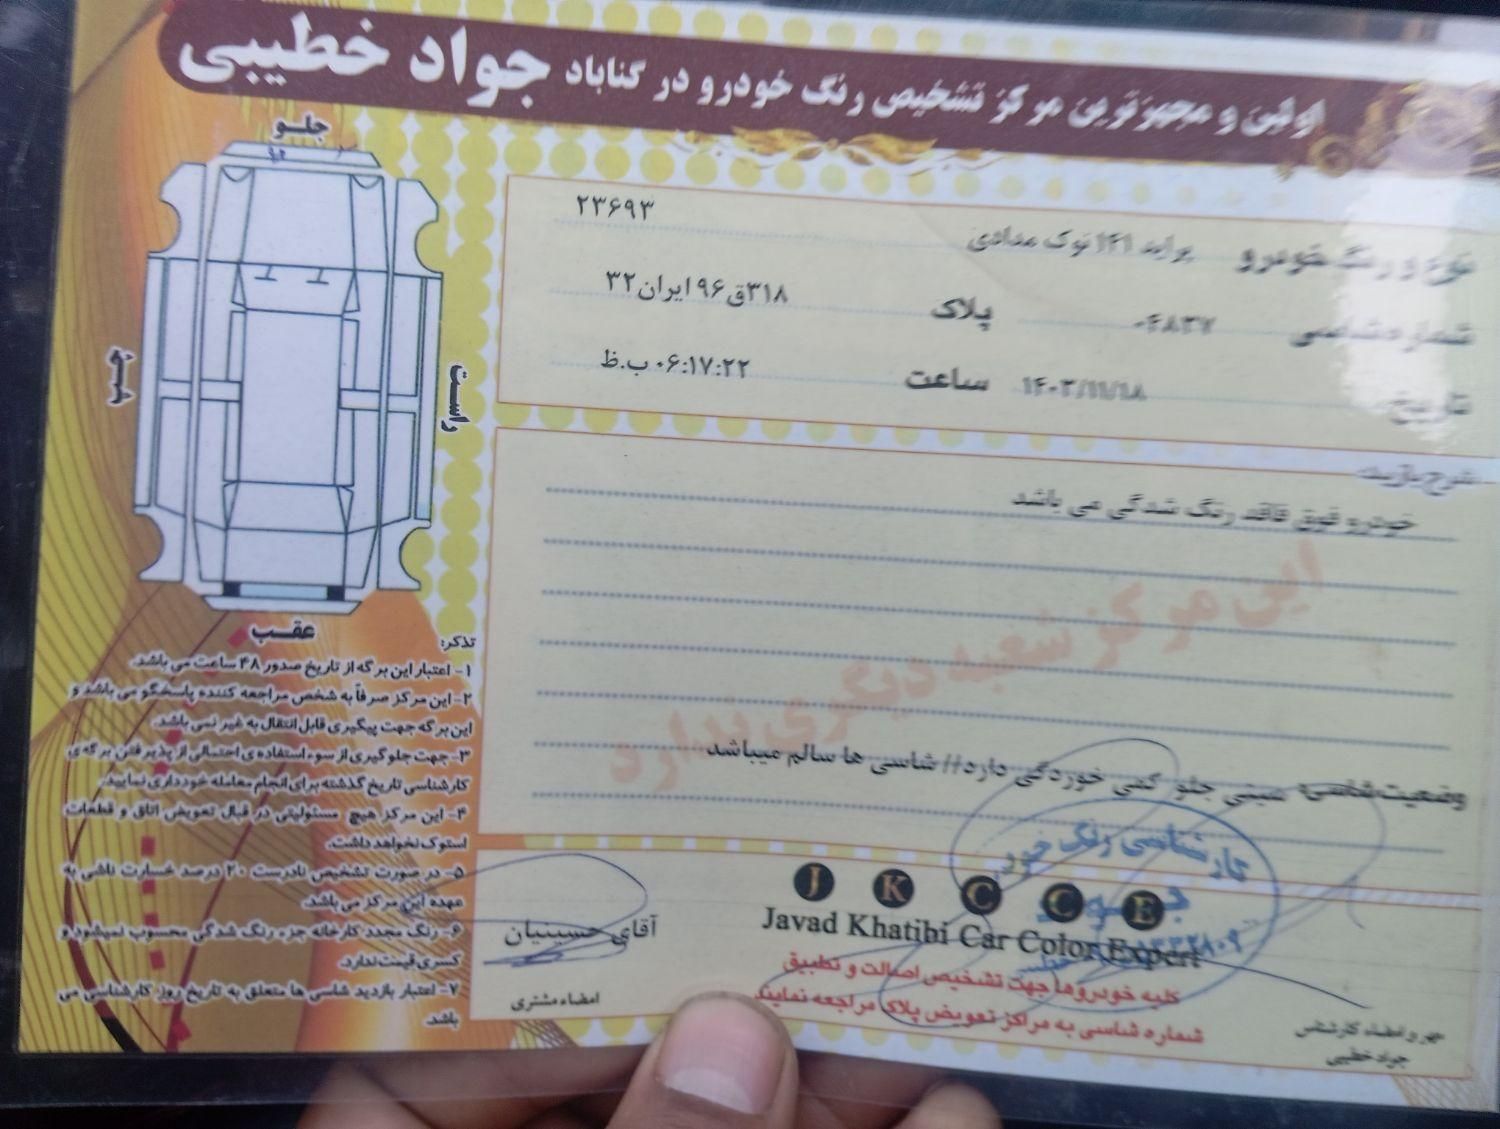 اولین و مجهزترین مرکز تشخیص رنگ خودرو در گناباد جواد خطیبی
نوع و رنگ خودرو پراید ۱۴۱ نوک مدادی ۲۳۶۹۳
شماره شاسی ۰۴۸۳۷ پلاک ۳۱۸ق۹۶ ایران۳۲
تاریخ ۱۴۰۳/۱۱/۱۸ ساعت ۰۶:۱۷:۲۲ ب.ظ
شرح بازدید:
خودرو فوق فاقد رنگ شدگی می باشد
این مرکز شعبه دیگری ندارد
وضعیت شاسی: سینی جلو کمی خوردگی دارد// شاسی ها سالم میباشد
کارشناسی رنگ خودرو
J K C C E
Javad Khatibi Car Color Expert
کلیه خودروها جهت تشخیص اصالت و تطبیق
شماره شاسی به مراکز تعویض پلاک مراجعه نمایند
مهر و امضاء کارشناس
جواد خطیبی
آقای حسینیان
امضاء مشتری
جلو
راست
چپ
عقب
تذکر:
۱- اعتبار این برگه از تاریخ صدور ۴۸ ساعت می باشد.
۲- این مرکز صرفاً به شخص مراجعه کننده پاسخگو می باشد و
این برگه جهت پیگیری قابل انتقال به غیر نمی باشد.
۳- جهت جلوگیری از سوء استفاده ی احتمالی از پذیرفتن برگه ی
کارشناسی تاریخ گذشته برای انجام معامله خودداری نمایید.
۴- این مرکز هیچ مسئولیتی در قبال تعویض اتاق و قطعات
استوک نخواهد داشت.
۵- در صورت تشخیص نادرست ۲۰ درصد خسارت ناشی به
عهده این مرکز می باشد.
۶- رنگ مجدد کارخانه جزء رنگ شدگی محسوب نمیشود و
کسری قیمت ندارد.
۷- اعتبار بازدید شاسی ها متعلق به تاریخ روز کارشناسی می
باشد.